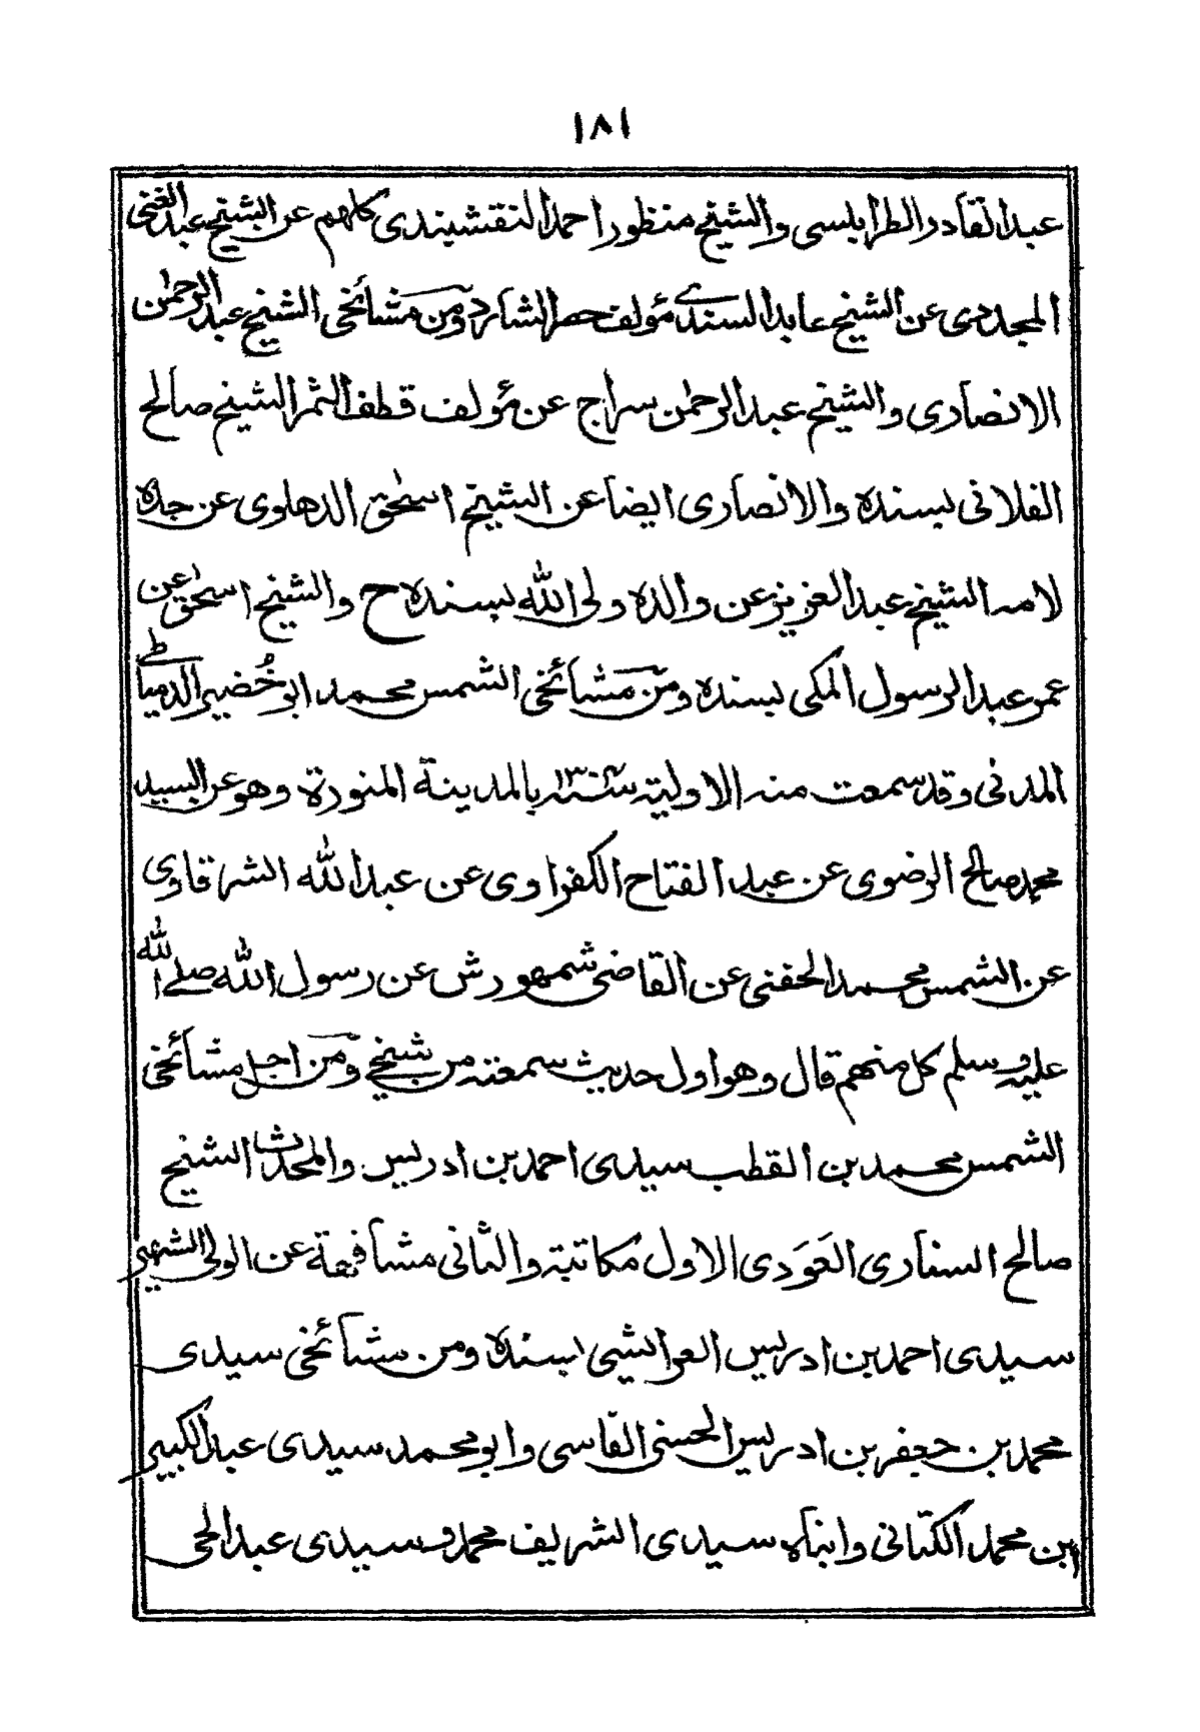 ١٨١
عبد القادر الطرابلسى والشيخ منظور احمد النقشبندى كلهم عن الشيخ عبد الغنى
المجددى عن الشيخ عابد السندى مؤلف حصر الشارد ومن مشائخى الشيخ عبد الرحمٰن
الانصارى والشيخ عبد الرحمٰن سراج عن مؤلف قطف الثمر الشيخ صالح
الفلانى بسنده والانصارى ايضا عن الشيخ اسحٰق الدهلوى عن جده
لامه الشيخ عبد العزيز عن والده ولى الله بسنده ح والشيخ اسحٰق عن
عمر عبد الرسول المكى بسنده ومن مشائخى الشمس محمد ابو خُضير الدمياطى
المدنى وقد سمعت منه الاولية سنة بالمدينة المنورة وهو عن السيد
محمد صالح الرضوى عن عبد الفتاح الكفراوى عن عبد الله الشرقاوى
عن الشمس محمد الحفنى عن القاضى شمهورش عن رسول الله صلى الله
عليه وسلم كل منهم قال وهو اول حديث سمعته من شيخى ومن اجل مشائخى
الشمس محمد بن القطب سيدى احمد بن ادريس والمحدث الشيخ
صالح السنارى العَوَدى الاول مكاتبة والثانى مشافهة عن الولى الشهير
سيدى احمد بن ادريس العرائشى بسنده ومن مشائخى سيدى
محمد بن جعفر بن ادريس الحسنى الفاسى وابو محمد سيدى عبد الكبير
بن محمد الكتانى وابناه سيدى الشريف محمد وسيدى عبد الحى